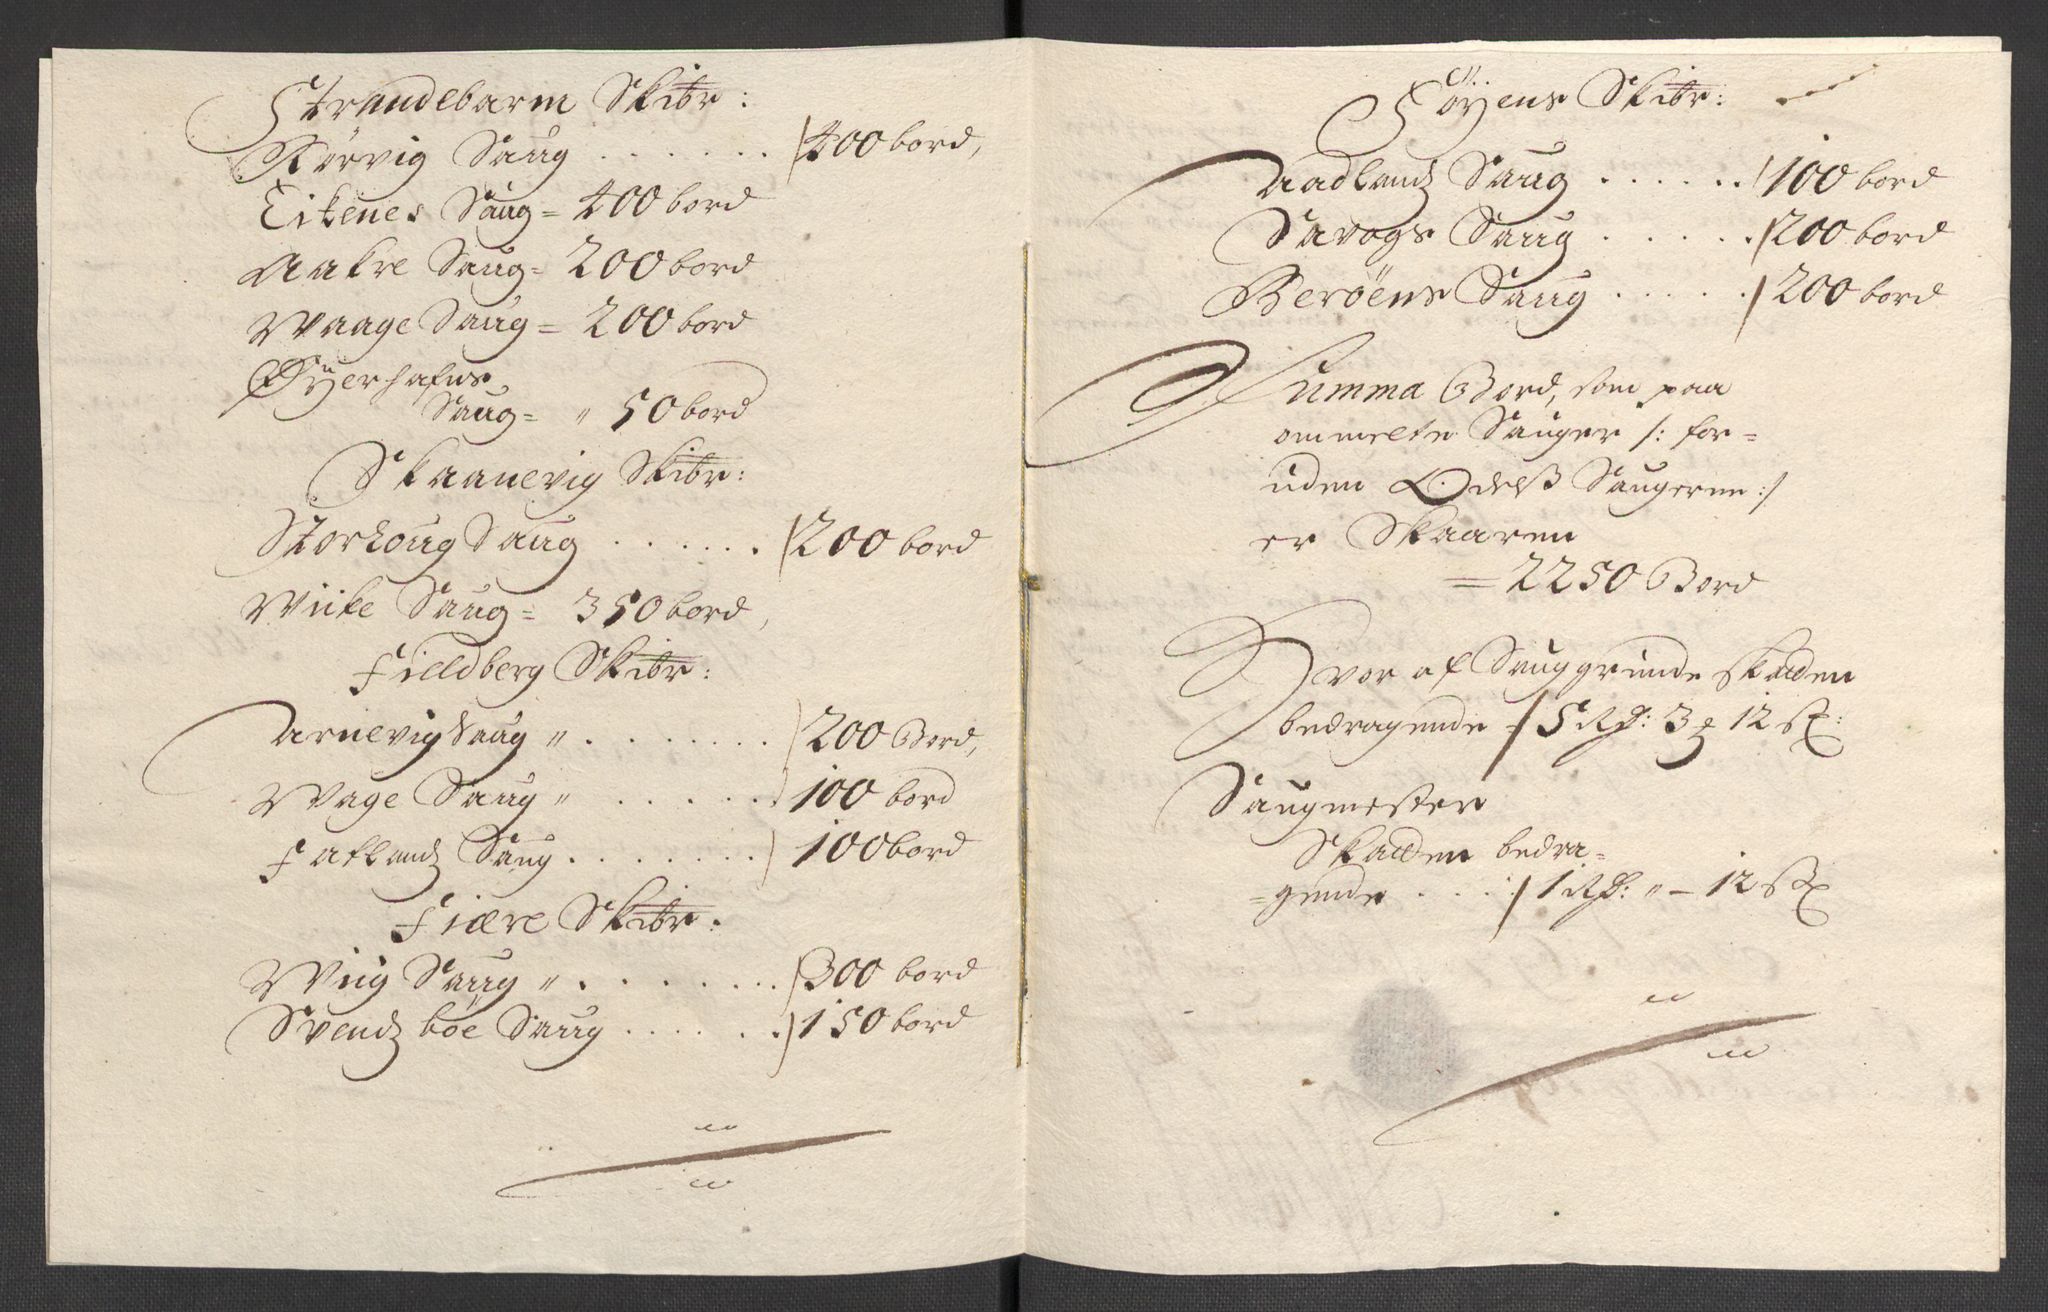 Strandebarm Skibr:
Rörvig Saug . . . . . . 400 bord,
Eikenes Saug = 400 bord
Aakre Saug = 200 bord
Waage Saug = 200 bord
Øyerhafns
Saug = " 50 bord
Skaanevig Skibr:
Storhoug Saug . . . . . . 200 bord
Wiike Saug = 350 bord,
Fieldberg Skibr:
Arnevig Saug " . . . . . . . 200 Bord,
Wage Saug " . . . . . . 100 bord
Fatlandz Saug . . . . . . . 100 bord
Fiære Skibr:
Wiig Saug " . . . . . . . 300 bord
Svendzböe Saug . . . . . . 150 bord
Föÿens Skibr:
Aadlandz Saug . . . . . . 100 bord
Savogs Saug . . . . . . 200 bord
Beröens Saug . . . . . 200 bord
Summa Bord, som paa
ommelte Sauger /: for=
uden Odelss Saugerne :/
er Skaaren
= 2250 Bord
Hvor af Sauggrunde skatten
bedragende = 5 Rdr: 3 12 s:
Saugmester
Skatten bedra=
=gende . . . . 1 Rdr: " – 12 s